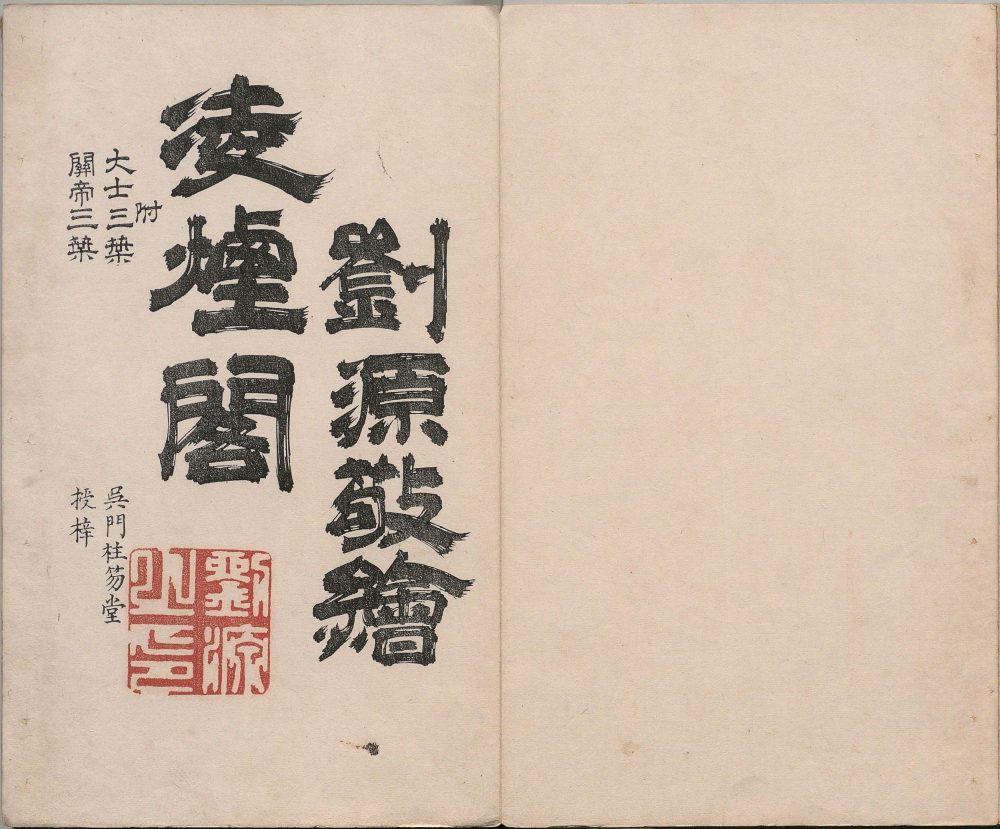 劉源敬繪
凌煙閣
附
大士三𠎀
關帝三𠎀
吳門柱笏堂
授梓
劉源
之印